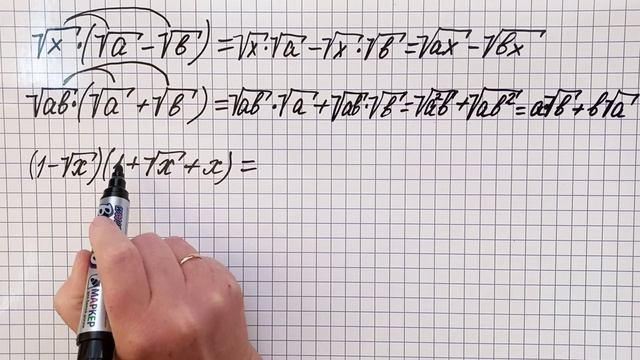 √x · (√a − √b) = √x · √a − √x · √b = √ax − √bx
√ab · (√a + √b) = √ab · √a + √ab · √b = √a²b + √ab² = a√b + b√a
(1 − √x)(1 + √x + x) =
МАРКЕР